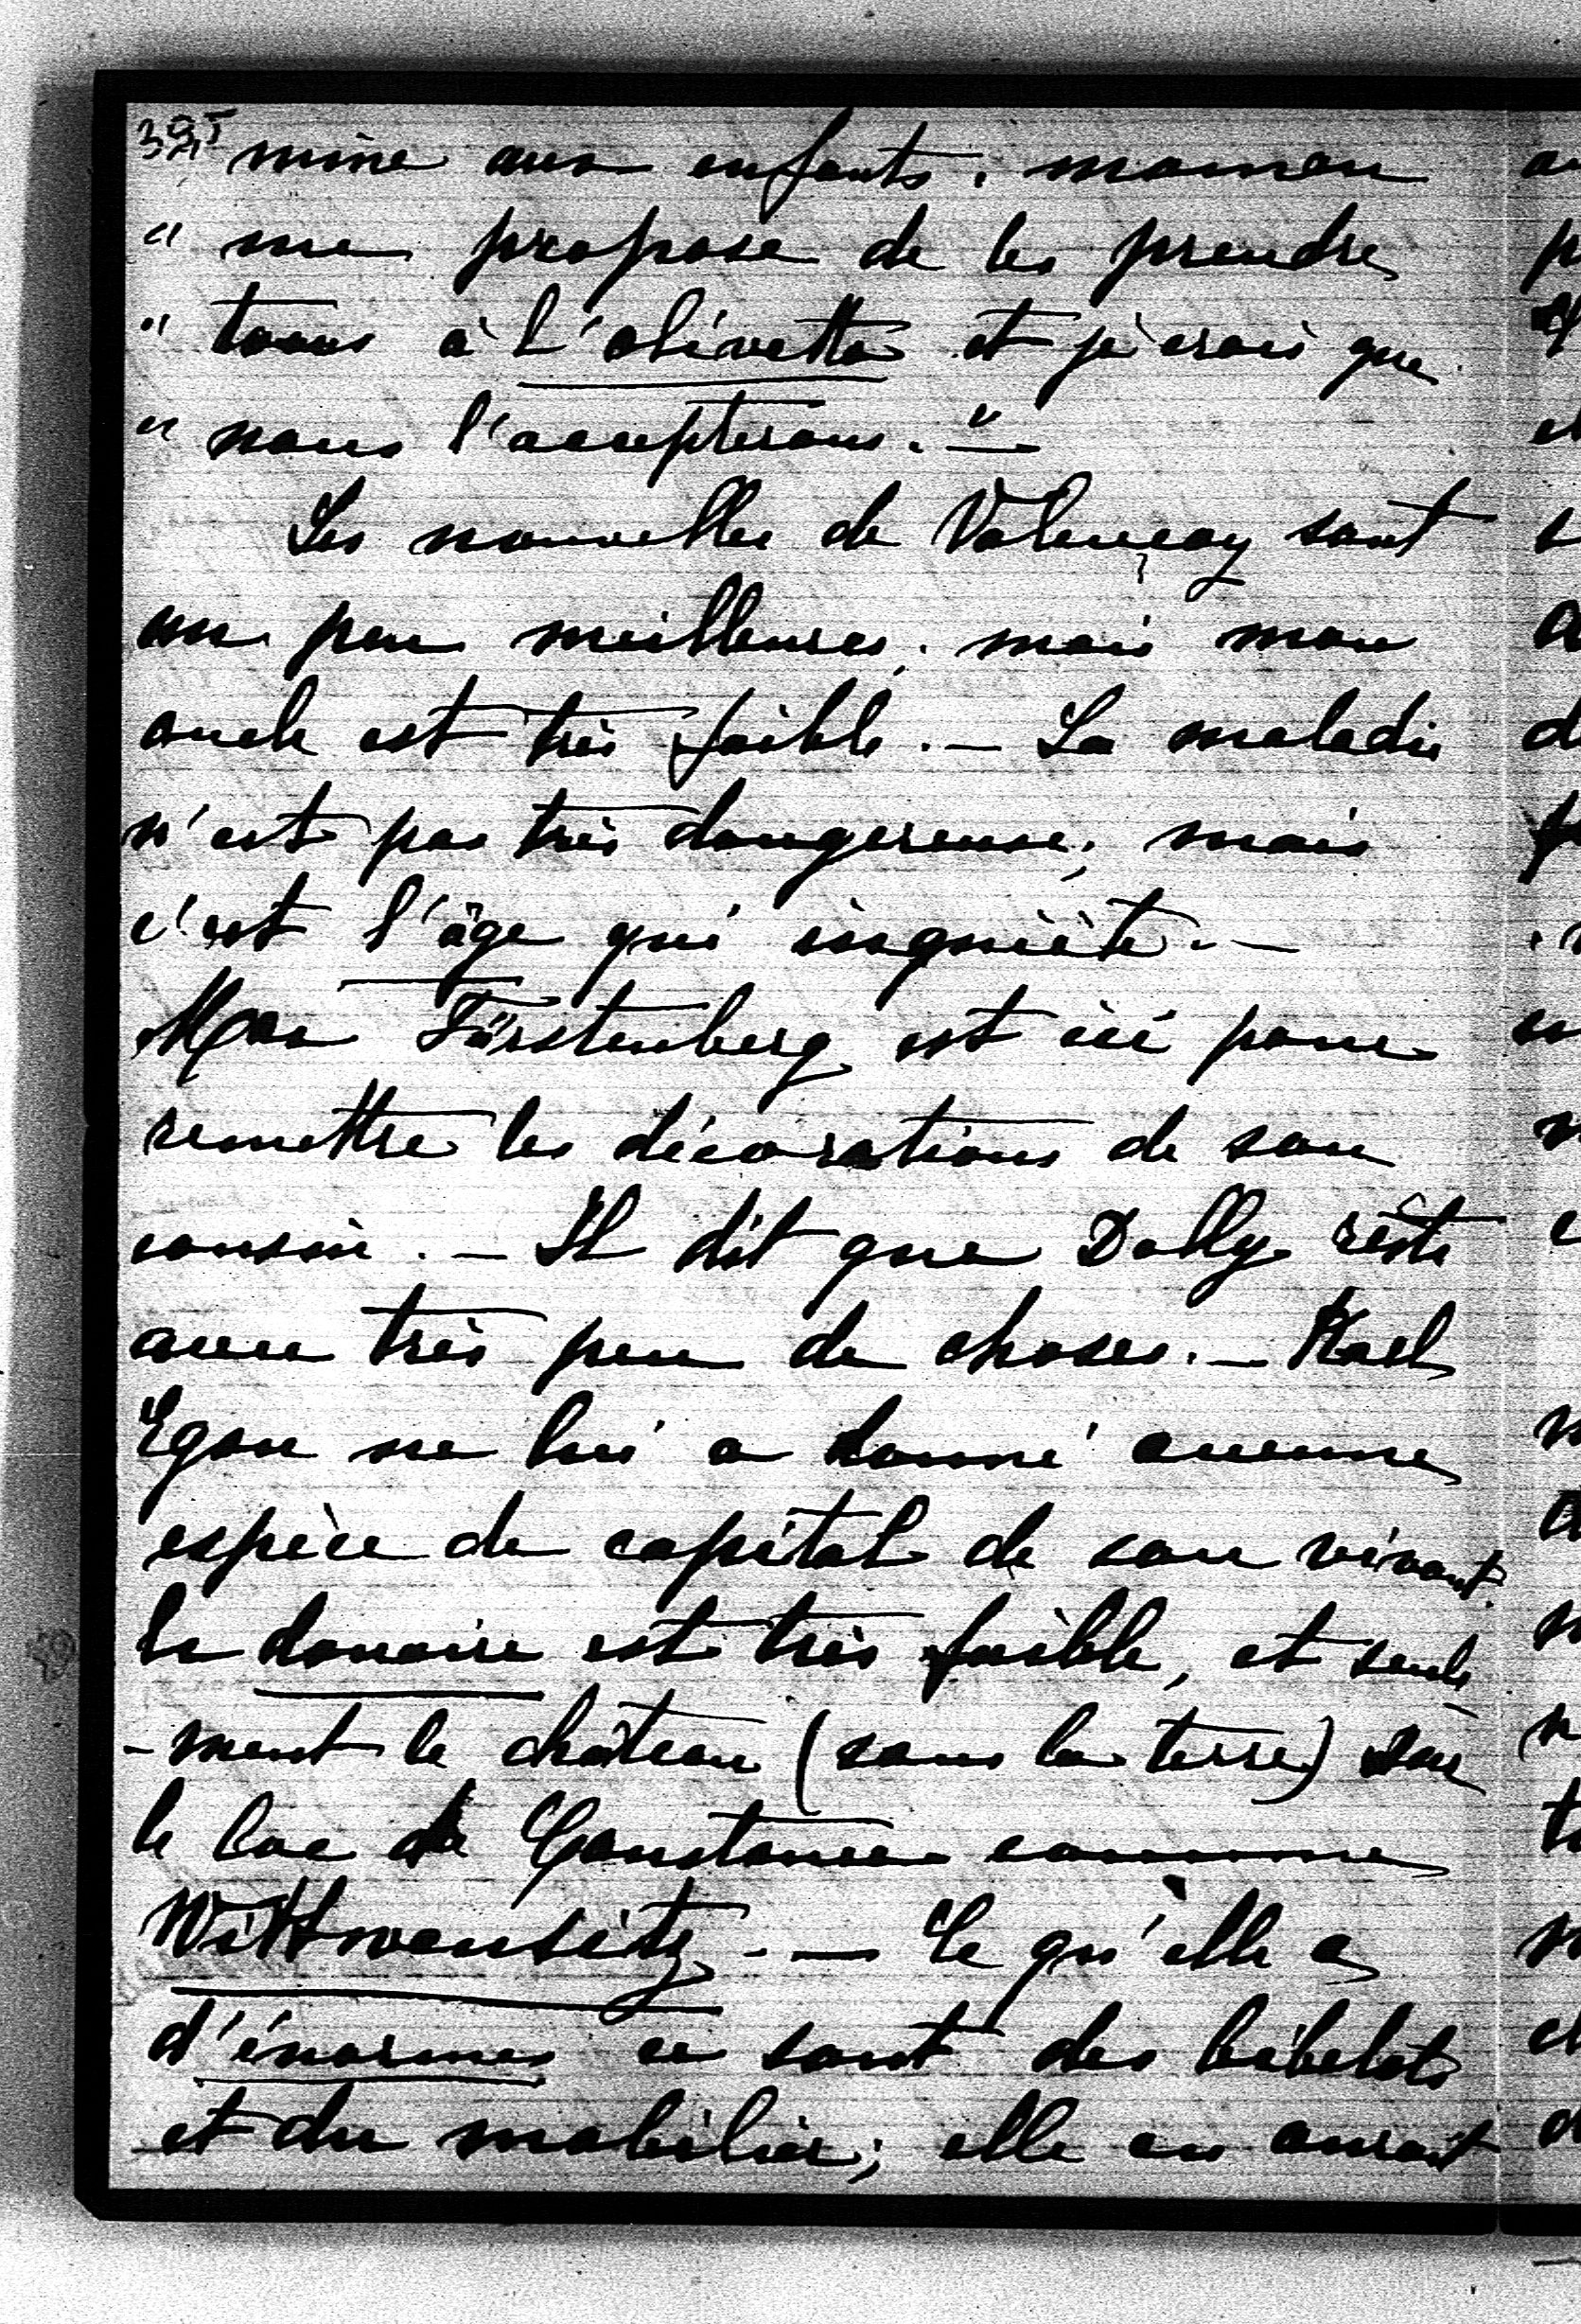 395
mine aux enfants. maman
" me propose de les prendre
" tous à L'olivetta et je crois que
" nous l'accepterons. "—
Les nouvelles de Valençay sont
un peu meilleures; mais mon
oncle est très faible. — La maladie
n'est pas très dangereuse; mais
c'est l'âge qui inquiète. —
Max Fürstenberg est ici pour
remettre les décorations de son
cousin. — Il dit que Dolly reste
avec très peu de choses. — Karl
Egon ne lui a donné aucune
espèce de capital de son vivant.
le douaire est très faible, et seule
-ment le château (sans la terre) sur
le lac de Constance comme
Wittwensitz. — Ce qu'elle a
d'énormes ce sont des bibelots
et du mobilier; elle en aurait